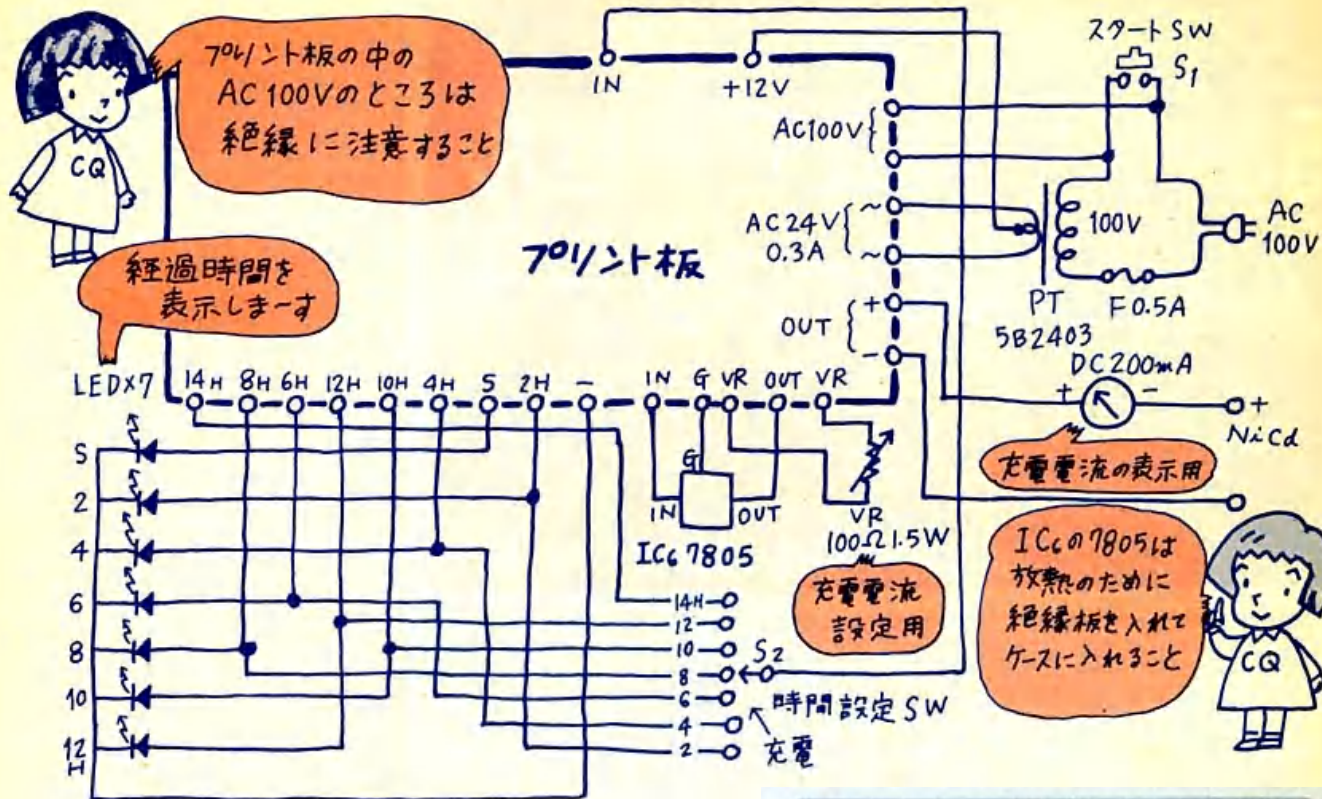 プリント板の中の
AC100Vのところは
絶縁に注意すること
CQ
経過時間を
表示しまーす
IN
+12V
スタートSW
S1
AC100V
AC24V
0.3A
~
~
プリント板
100V
AC
100V
PT
5B2403
F0.5A
OUT
+
-
DC200mA
+
-
+
NiCd
充電電流の表示用
LED×7
14H 8H 6H 12H 10H 4H S 2H - IN G VR OUT VR
S
2
4
6
8
10
12
H
G
IN
OUT
IC6 7805
VR
100Ω1.5W
充電電流
設定用
14H
12
10
8
6
4
2
S2
時間設定SW
充電
IC6の7805は
放熱のために
絶縁板を入れて
ケースに入れること
CQ